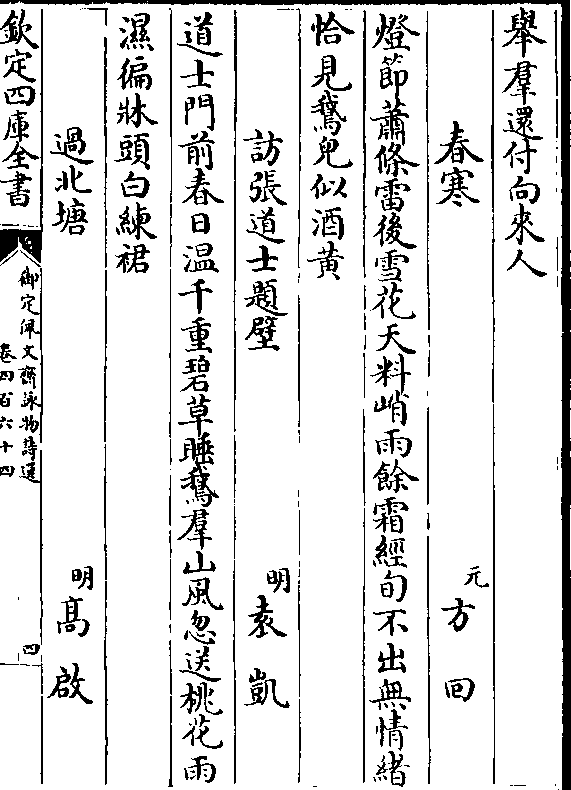 舉羣還付向來人
春寒
元方回
燈節蕭條雷後雪花天料峭雨餘霜經旬不出無情緒
恰見鵞兒似酒黃
訪張道士題壁
明袁凱
道士門前春日温千重碧草睡鵞羣山風忽送桃花雨
濕徧牀頭白練裙
過北塘
明高啟
欽定四庫全書
御定佩文齋詠物詩選
卷四百六十四
四